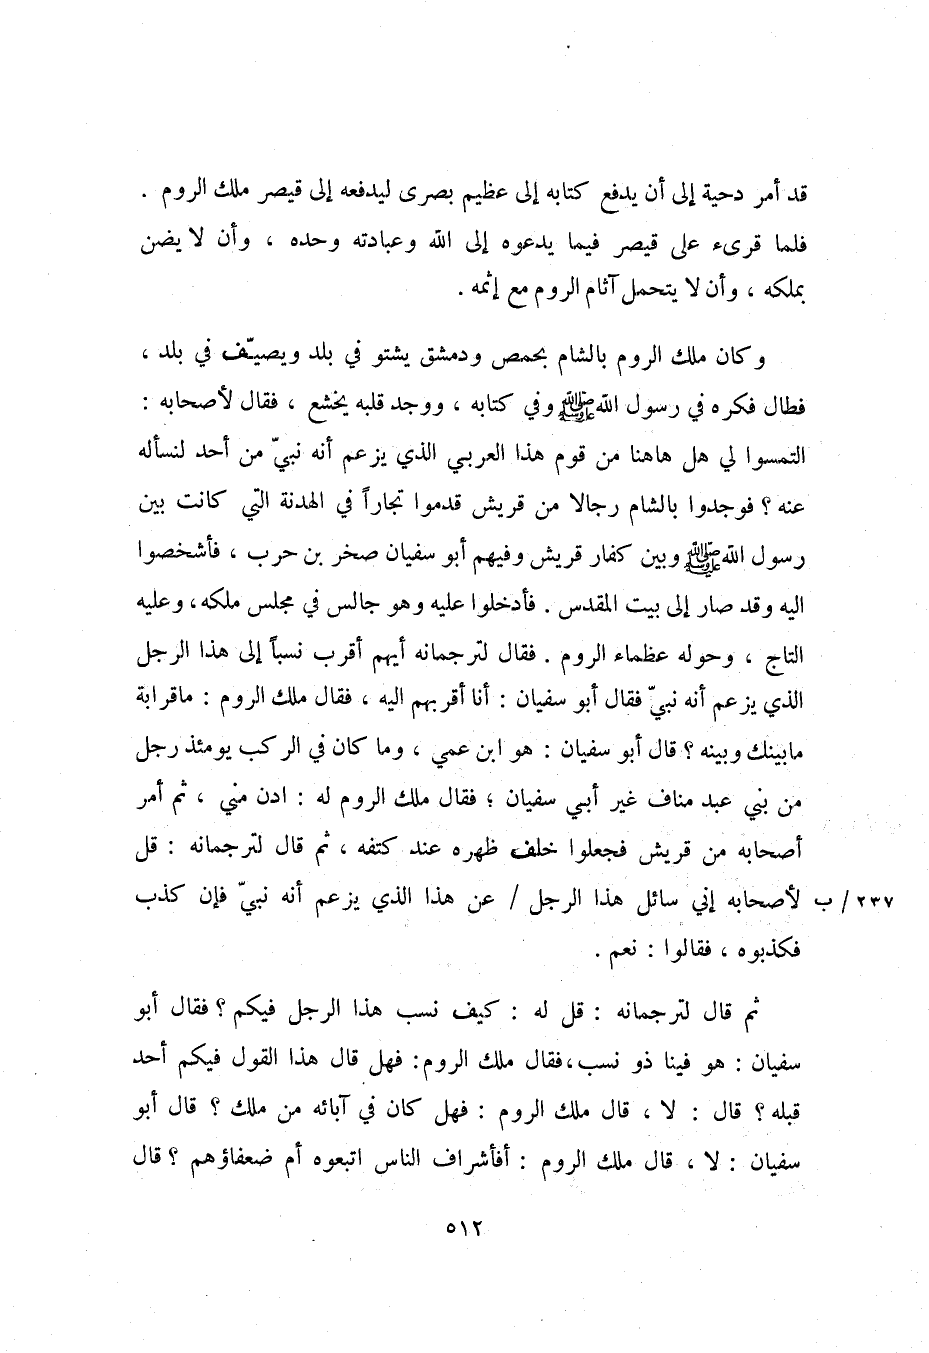 قد أمر دحية إلى أن يدفع كتابه إلى عظيم بصرى ليدفعه إلى قيصر ملك الروم .
فلما قرىء على قيصر فيما يدعوه إلى الله وعبادته وحده ، وأن لا يضن
بملكه ، وأن لا يتحمل آثام الروم مع إثمه .
وكان ملك الروم بالشام بحمص ودمشق يشتو في بلد ويصيّف في بلد ،
فطال فكره في رسول الله ﷺ وفي كتابه ، ووجد قلبه يخشع ، فقال لأصحابه :
التمسوا لي هل هاهنا من قوم هذا العربي الذي يزعم أنه نبيّ من أحد لنسأله
عنه ؟ فوجدوا بالشام رجالا من قريش قدموا تجاراً في الهدنة التي كانت بين
رسول الله ﷺ وبين كفار قريش وفيهم أبو سفيان صخر بن حرب ، فأشخصوا
اليه وقد صار إلى بيت المقدس . فأدخلوا عليه وهو جالس في مجلس ملكه ، وعليه
التاج ، وحوله عظماء الروم . فقال لترجمانه أيهم أقرب نسباً إلى هذا الرجل
الذي يزعم أنه نبيّ فقال أبو سفيان : أنا أقربهم اليه ، فقال ملك الروم : ماقرابة
مابينك وبينه ؟ قال أبو سفيان : هو ابن عمي ، وما كان في الركب يومئذ رجل
من بني عبد مناف غير أبي سفيان ؛ فقال ملك الروم له : ادن مني ، ثم أمر
أصحابه من قريش فجعلوا خلف ظهره عند كتفه ، ثم قال لترجمانه : قل
٢٣٧ / ب لأصحابه إني سائل هذا الرجل / عن هذا الذي يزعم أنه نبيّ فإن كذب
فكذبوه ، فقالوا : نعم .
ثم قال لترجمانه : قل له : كيف نسب هذا الرجل فيكم ؟ فقال أبو
سفيان : هو فينا ذو نسب ، فقال ملك الروم : فهل قال هذا القول فيكم أحد
قبله ؟ قال : لا ، قال ملك الروم : فهل كان في آبائه من ملك ؟ قال أبو
سفيان : لا ، قال ملك الروم : أفأشراف الناس اتبعوه أم ضعفاؤهم ؟ قال
٥١٢